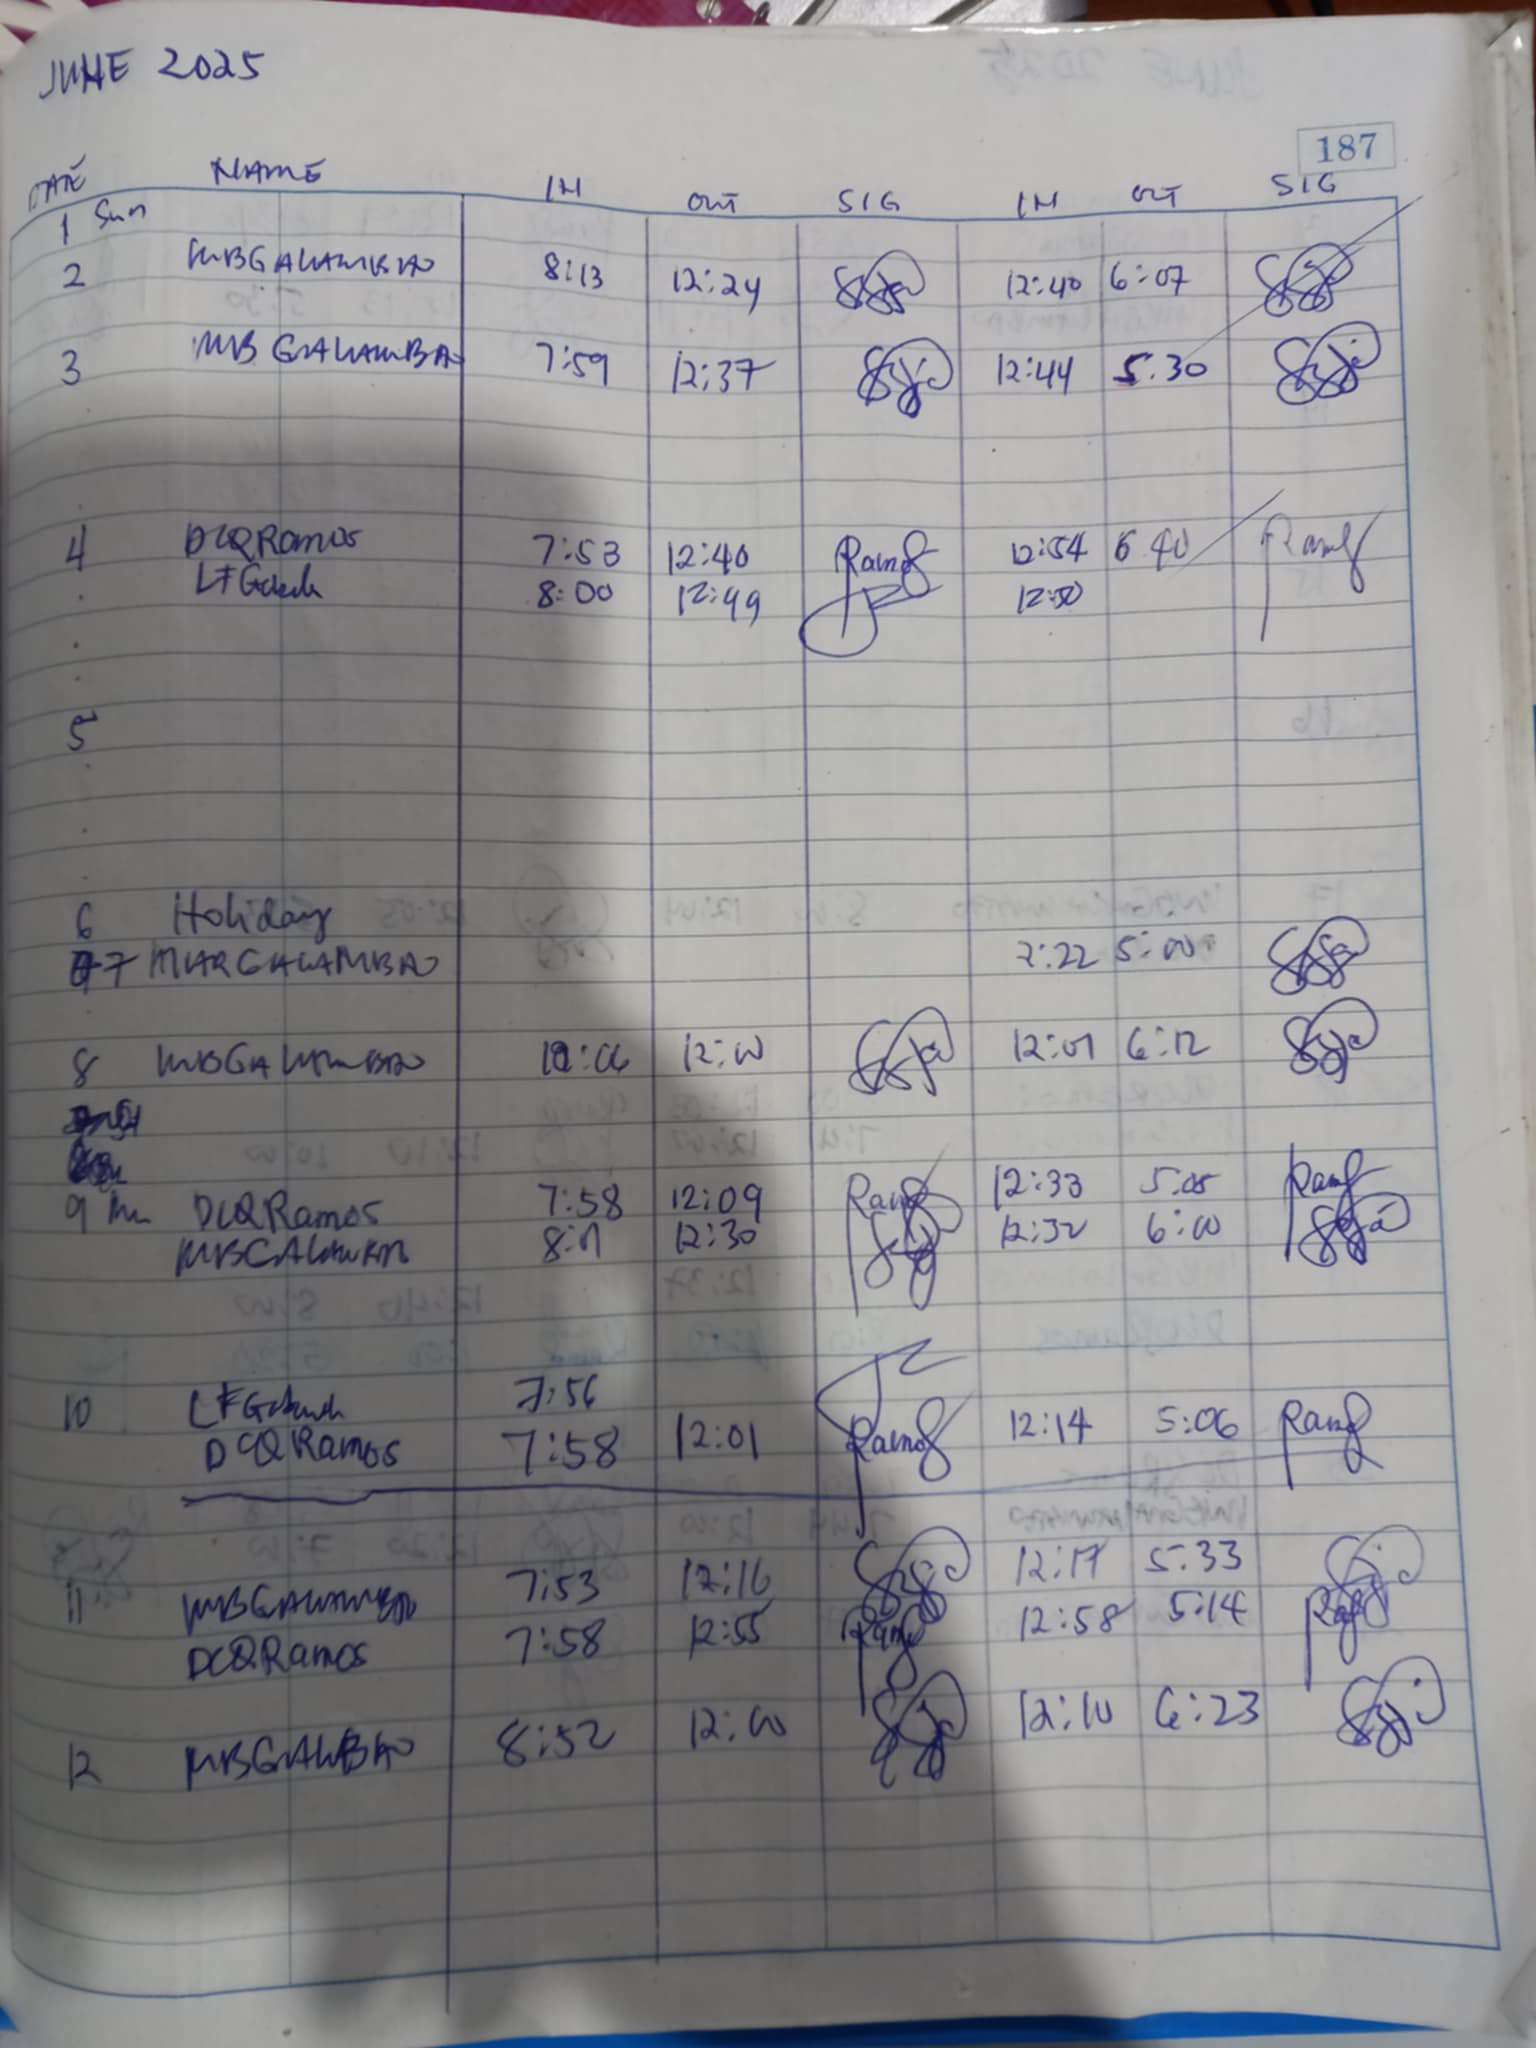 JUNE 2025
187
DATE NAME IN OUT SIG IN OUT SIG
1 Sun
2 MBGALAMBAO 8:13 12:24 12:40 6:07
3 MB GALAMBAO 7:59 12:37 12:44 5:30
4 DCQRamos 7:53 12:40 Ramos 12:54 6 40 Ramos
8:00 12:49 12:50
5
6 Holiday
7 MARGALAMBAO 2:22 5:00
8 MBGALAMBAO 12:00 12:01 6:12
9 DCQRamos 7:58 12:09 Ramos 12:33 5:05 Ramos
12:30 12:32 6:00
10 7:56
DCQRamos 7:58 12:01 Ramos 12:14 5:06 Ramos
11 MBGALAMBAO 7:53 12:16 12:17 5:33
DCQRamos 7:58 12:55 Ramos 12:58 5:14
12 MBGALBAO 8:52 12:00 12:10 6:23